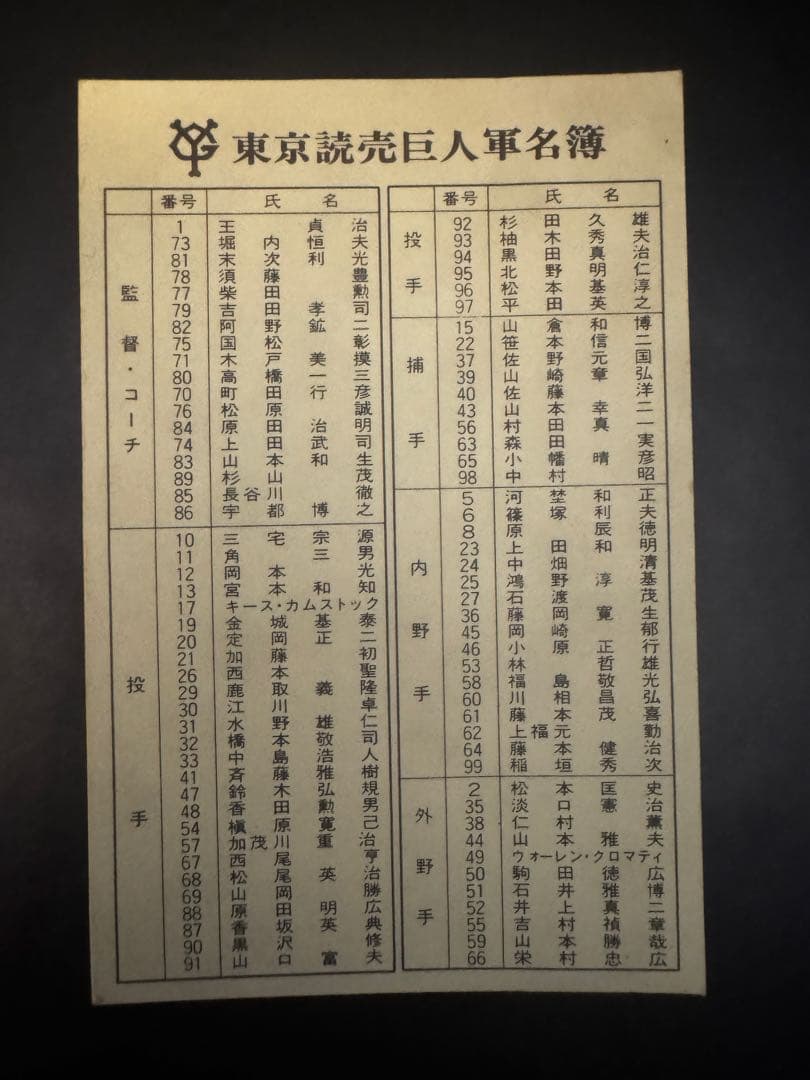 東京読売巨人軍名簿
番号 氏名
監督・コーチ
1 王貞治
73 堀内恒夫
81 末次利光
78 須藤豊
77 柴田勲
79 吉田孝司
82 阿野鉱二
75 国松彰
71 木戸美摸
80 高橋一三
70 町田行彦
76 松原誠
84 原田治明
74 上田武司
83 山本和生
89 杉山茂
85 長谷川徹
86 宇都博之
投手
10 三宅宗源
11 角三男
12 岡本光
13 宮本和知
17 キース・カムストック
19 金城基泰
20 定岡正二
21 加藤初
26 西本聖
29 鹿取義隆
30 江川卓
31 水野雄仁
32 橋本敬司
33 中島浩人
41 斉藤雅樹
47 鈴木弘規
48 香田勲男
54 槇原寛己
57 加茂川重治
67 西尾亨
68 松尾英治
69 山岡勝
88 原田明広
87 香坂英典
90 黒沢修
91 山口富夫
番号 氏名
投手
92 杉田久雄
93 柚木秀夫
94 黒田真治
95 北野明仁
96 松本基淳
97 平田英之
捕手
15 山倉和博
22 笹本信二
37 佐野元国
39 山崎章弘
40 佐藤洋
43 山本幸二
56 村田真一
63 森田実
65 小幡晴彦
98 中村昭
内野手
5 河埜和正
6 篠塚利夫
8 原辰徳
23 上田和明
24 中畑清
25 鴻野淳基
27 石渡茂
36 藤岡寛生
45 岡崎郁
46 小原正行
53 林哲雄
58 福島敬光
60 川相昌弘
61 藤本茂喜
62 上福元勤
64 藤本健治
99 稲垣秀次
外野手
2 松本匡史
35 淡口憲治
38 仁村薫
44 山本雅夫
49 ウォーレン・クロマティ
50 駒田徳広
51 石井雅博
52 井上真二
55 吉村禎章
59 山本勝哉
66 栄村忠広